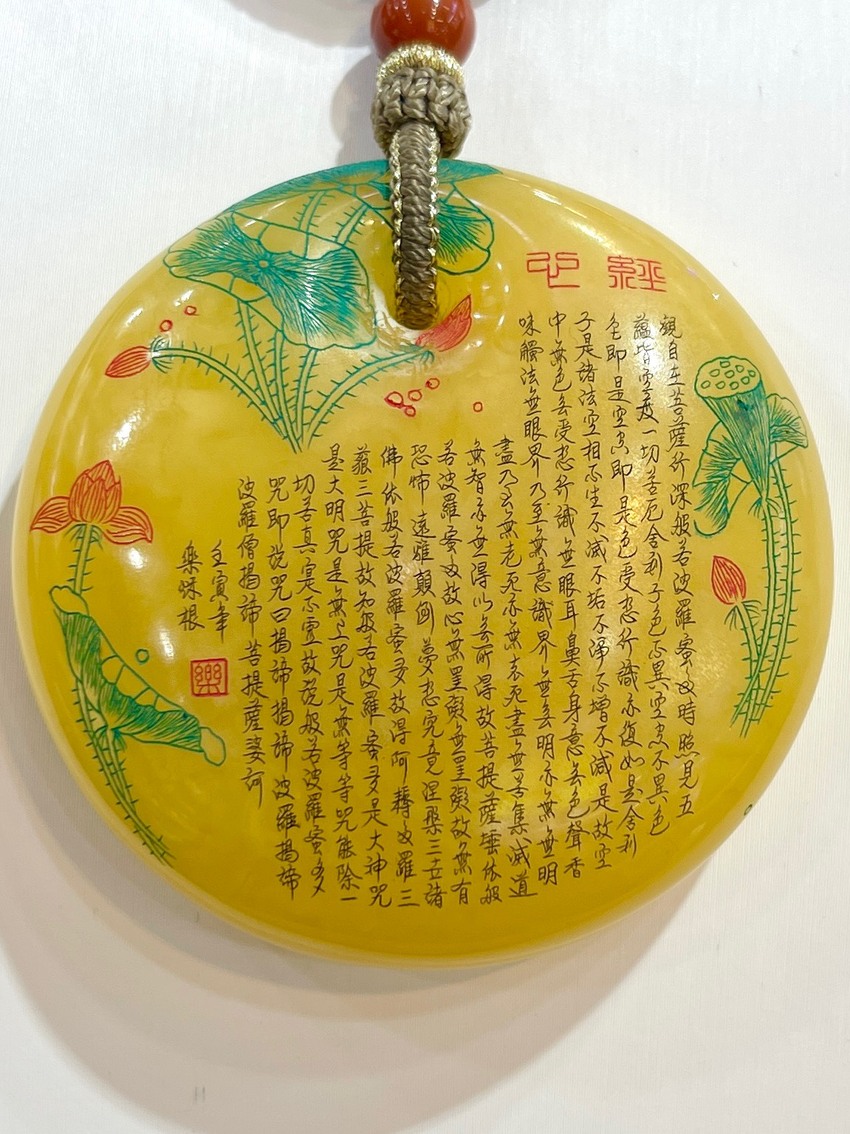 心經
觀自在菩薩行深般若波羅蜜多時照見五
蘊皆空度一切苦厄舍利子色不異空空不異色
色即是空空即是色受想行識亦復如是舍利
子是諸法空相不生不滅不垢不淨不增不減是故空
中無色無受想行識無眼耳鼻舌身意無色聲香
味觸法無眼界乃至無意識界無無明亦無無明
盡乃至無老死亦無老死盡無苦集滅道
無智亦無得以無所得故菩提薩埵依般
若波羅蜜多故心無罣礙無罣礙故無有
恐怖遠離顛倒夢想究竟涅槃三世諸
佛依般若波羅蜜多故得阿耨多羅三
藐三菩提故知般若波羅蜜多是大神咒
是大明咒是無上咒是無等等咒能除一
切苦真實不虛故說般若波羅蜜多
咒即說咒曰揭諦揭諦波羅揭諦
波羅僧揭諦菩提薩婆訶
壬寅年
樂根
樂